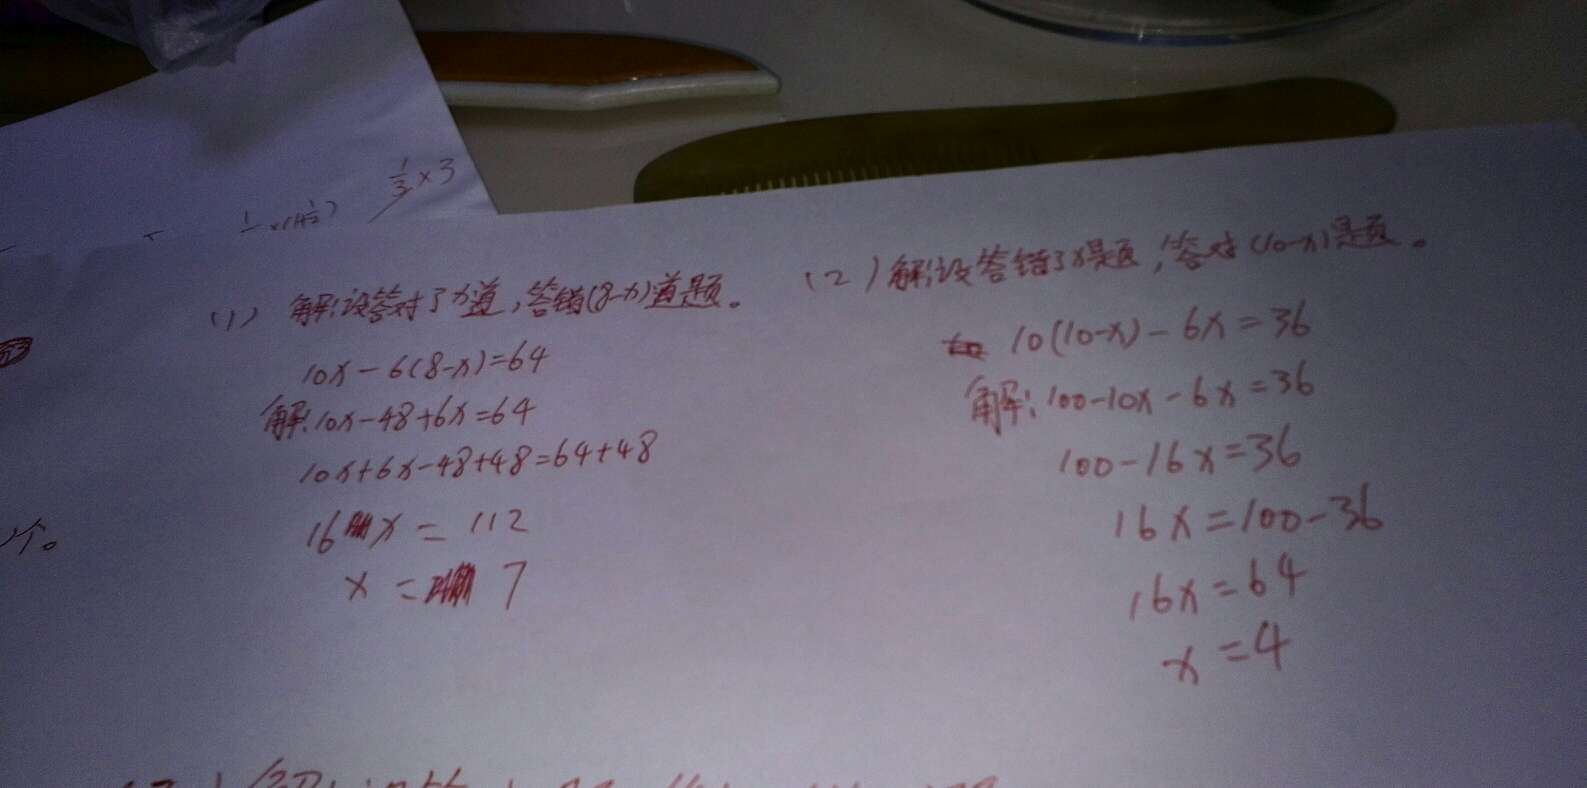 1/3×3
(1) 解:设答对了x道,答错(8-x)道题。
10x-6(8-x)=64
解:10x-48+6x=64
10x+6x-48+48=64+48
16x=112
x=7
(2)解:设答错了x题,答对(10-x)题。
10(10-x)-6x=36
解:100-10x-6x=36
100-16x=36
16x=100-36
16x=64
x=4
个。